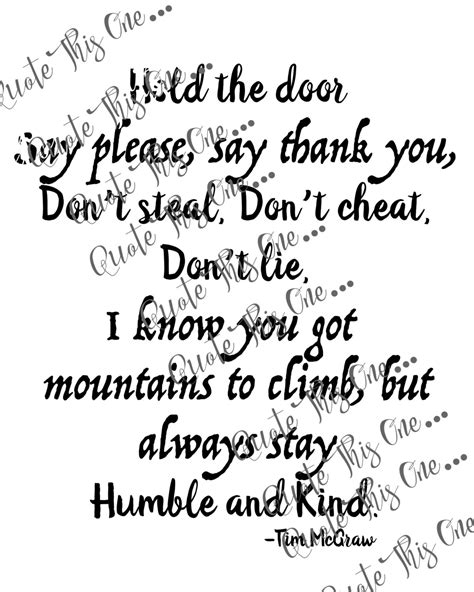 Hold the door
Say please, say thank you,
Don't steal, Don't cheat,
Don't lie,
I know you got
mountains to climb, but
always stay
Humble and Kind.
-Tim McGraw
Quote This One...
Quote This One...
Quote This One...
Quote This One...
Quote This One...
Quote This One...
Quote This One...
Quote This One...
Quote This One...